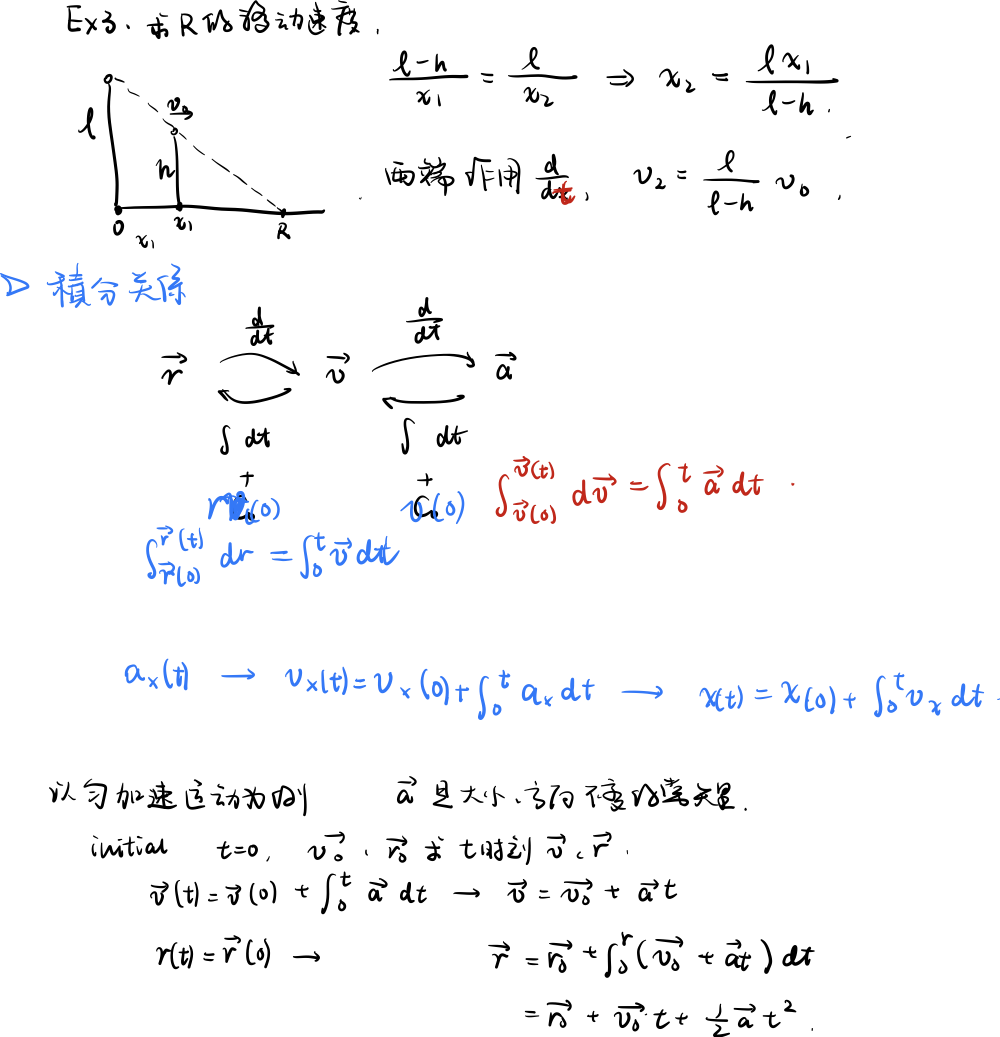 Ex3、求R的移动速度.
l v₀ h O x₁ x₁ R
(l-h)/x₁ = l/x₂ ⇒ x₂ = l x₁/(l-h).
两端作用 d/dt, v₂ = l/(l-h) v₀.
▷ 積分关係
d/dt d/dt
r⃗ v⃗ a⃗
∫ dt ∫ dt
+ +
r(0) v(0) ∫_{v⃗(0)}^{v⃗(t)} dv⃗ = ∫₀ᵗ a⃗ dt .
∫_{r⃗(0)}^{r⃗(t)} dr = ∫₀ᵗ v⃗ dt
aₓ(t) → vₓ(t) = vₓ(0) + ∫₀ᵗ aₓ dt → x(t) = x(0) + ∫₀ᵗ vₓ dt
以匀加速运动为例 a⃗ 是大小、方向不变的常矢量.
initial t=0, v₀⃗、r₀⃗ 求 t时刻 v⃗、r⃗.
v⃗(t) = v⃗(0) + ∫₀ᵗ a⃗ dt → v⃗ = v₀⃗ + a⃗t
r(t) = r⃗(0) → r⃗ = r₀⃗ + ∫₀ʳ (v₀⃗ + a⃗t) dt
= r₀⃗ + v₀⃗·t + ½ a⃗ t².